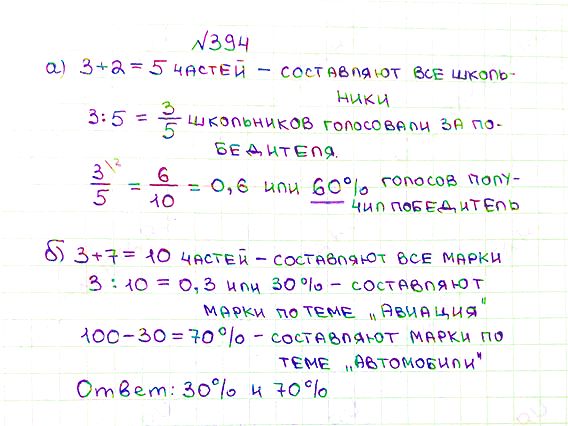 №394
а) 3+2 = 5 частей – составляют все школь-
ники
3:5 = 3/5 школьников голосовали за по-
бедителя.
3/5 \2 = 6/10 = 0,6 или 60% голосов полу-
чил победитель
б) 3+7 = 10 частей – составляют все марки
3 : 10 = 0,3 или 30% – составляют
марки по теме „Авиация"
100–30 = 70% – составляют марки по
теме „Автомобили"
Ответ: 30% и 70%